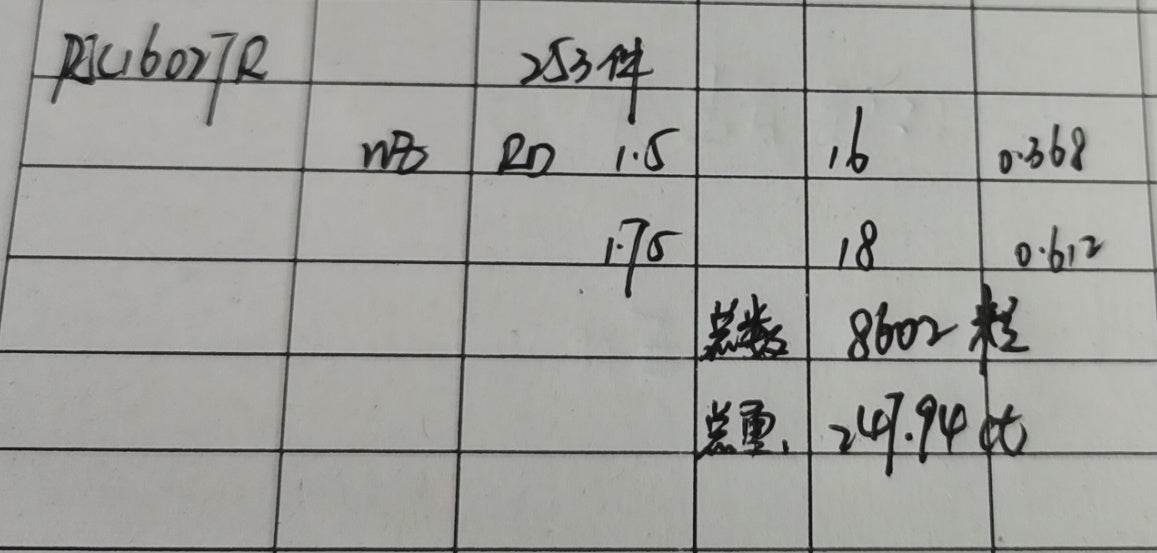 RJC16027R 253件
WB RD 1.5 16 0.368
1.75 18 0.612
总数 8602 粒
总重 247.94 ct